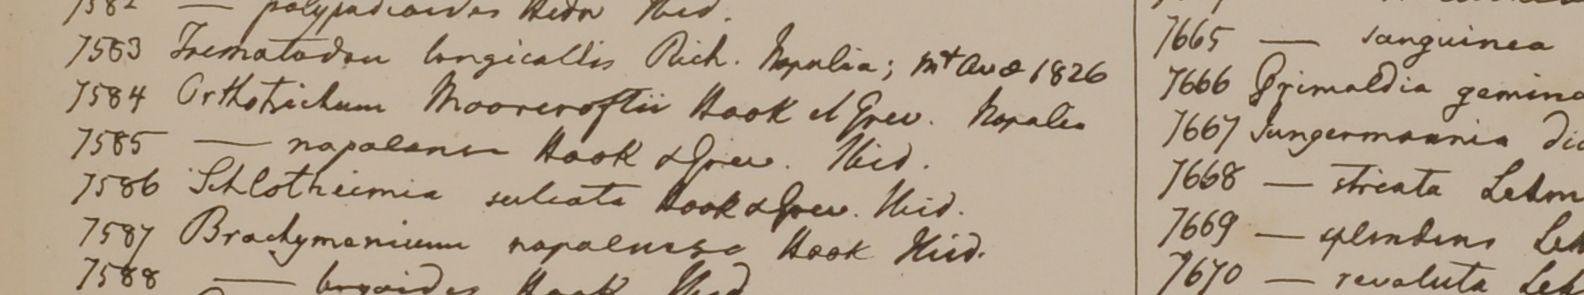 7582 — polypodioides Hedw Ibid.
7583 Trematodon longicollis Rich. Napalia; Mt Ava 1826
7584 Orthotrichum Moorcroftii Hook et Grev. Napalia
7585 — napalense Hook & Grev. Ibid.
7586 Schlotheimia sulcata Hook & Grev. Ibid.
7587 Brachymenium napalense Hook Ibid.
7588 — bryoides Hook Ibid
7665 — sanguinea
7666 Grimaldia
7667 Jungermannia
7668 — striata Lehm
7669 — splendens Leh
7670 — revoluta Leh